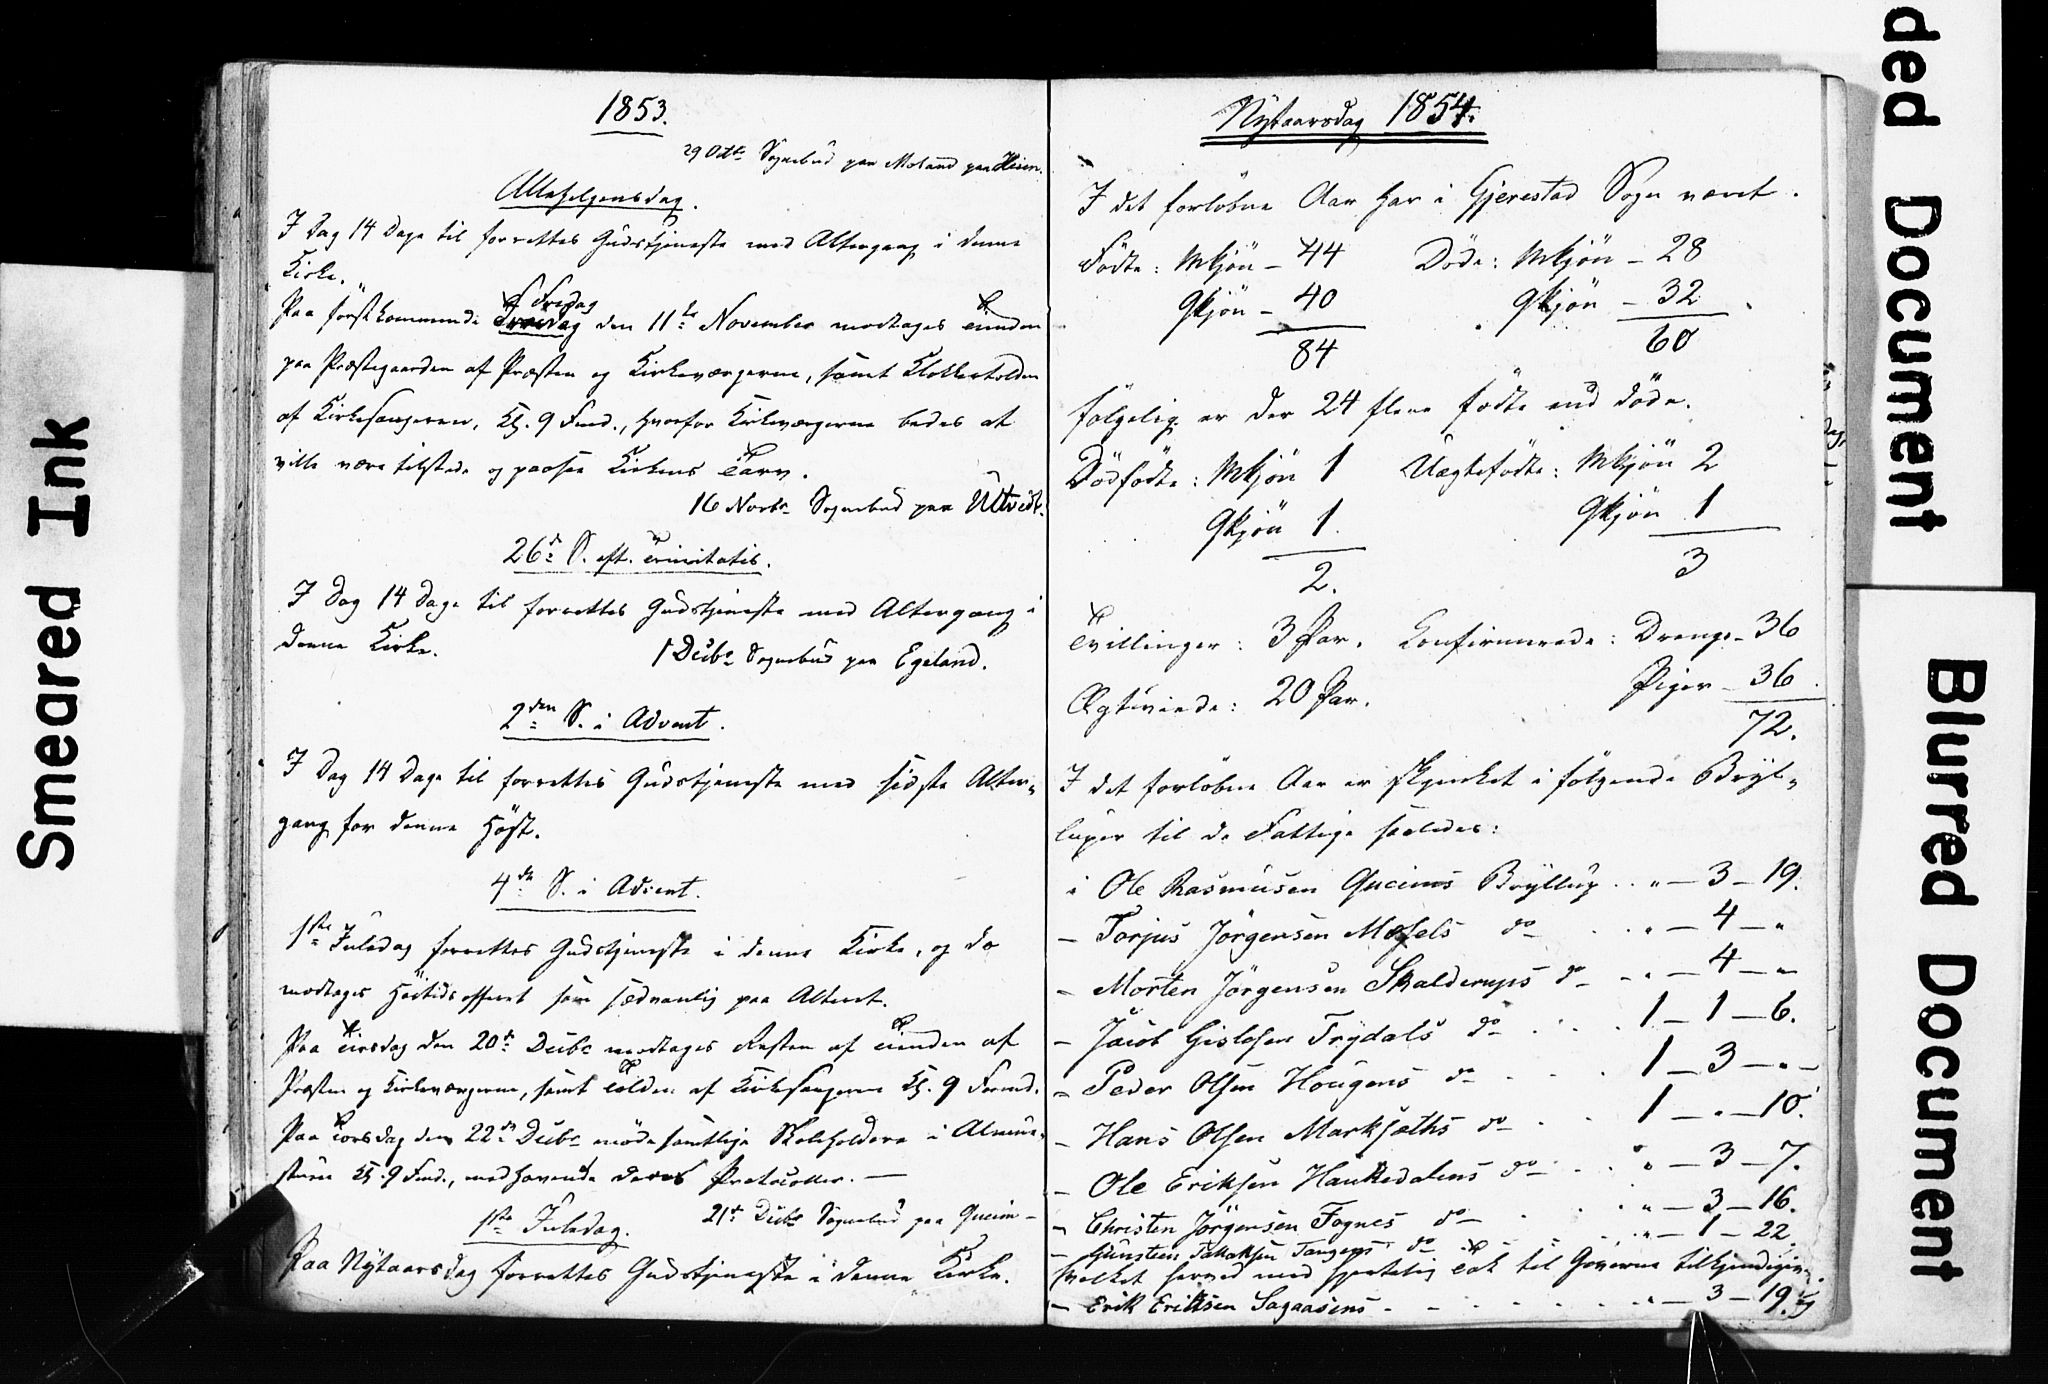 1853.
29 Octr Sognebud paa Moland paa Heien.
Allehelgensdag.
I Dag 14 Dage til forrettes Gudstjeneste med Altergang i denne
Kirke.
Paa förstkommende Fredag den 11te November modtages Tienden
paa Præstegaarden af Præsten og Kirkeværgerne, samt Klokkertolden
af Kirkesangeren, Kl. 9 Formd., hvorfor Kirkeværgerne bedes at
ville være tilstede og paasee Kirkens Tarv.
16 Novbr Sognebud paa Ultvedt.
26de S. eft. Trinitatis.
I Dag 14 Dage til forrettes Gudstjeneste med Altergang i
denne Kirke.
1 Decbr Sognebud paa Egeland.
2den S. i Advent.
I Dag 14 Dage til forrettes Gudstjeneste med sidste Alter-
gang for denne Höst.
4de S. i Advent.
1ste Juledag forrettes Gudstjeneste i denne Kirke, og da
modtages Höitidsofferet som sædvanlig paa Alteret.
Paa Tirsdag den 20de Decbr modtages Resten af Tienden af
Præsten og Kirkeværgerne, samt Tolden af Kirkesangeren Kl. 9 Formd.
Paa Torsdag den 22de Decbr möde samtlige Skoleholdere i Almue-
stuen Kl. 9 Formd., medhavende deres Protocoller. —
21de Decbr Sognebud paa Qveim
1ste Juledag.
Paa Nytaarsdag forrettes Gudstjeneste i denne Kirke.
Nytaarsdag 1854.
I det forlöbne Aar har i Gjerestad Sogn været.
Födte: Mkjön — 44 Döde: Mkjön — 28
Qkjön — 40 Qkjön — 32
84 60
fölgelig er der 24 flere födte end döde.
Dödfödte: Mkjön 1 Uægtefödte: Mkjön 2
Qkjön 1. Qkjön 1
2. 3
Tvillinger: 3 Par. Confirmerede: Drenge — 36
Ægteviede: 20 Par. Piger — 36.
72.
I det forlöbne Aar er skjenket i fölgende Bryl-
luper til de Fattige saaledes:
i Ole Rasmusen Qveims Bryllup . . " — 3 — 19.
— Torjus Jörgensen Mosfels do . . " — 4 — "
— Morten Jörgensen Skalderups do — " — 4 — "
— Jacob Gislesen Trydals do . . . 1 — 1 — 6.
— Peder Olsen Hougens do . . . 1 — 3 — " —
— Hans Olsen Marksæths do . . 1 — " — 10.
— Ole Eriksen Haukedalens do . . " — 3 — 7.
— Christen Jörgensen Fognes do . . . " — 3 — 16.
— Gunsteen Tallaksen Tangens do . . " — 1 — 22
hvilket herved med hjertelig Tak til Giverne tilkjendegives.
— Erik Eriksen Sagaasens . — . . . . . " — 3 — 19.